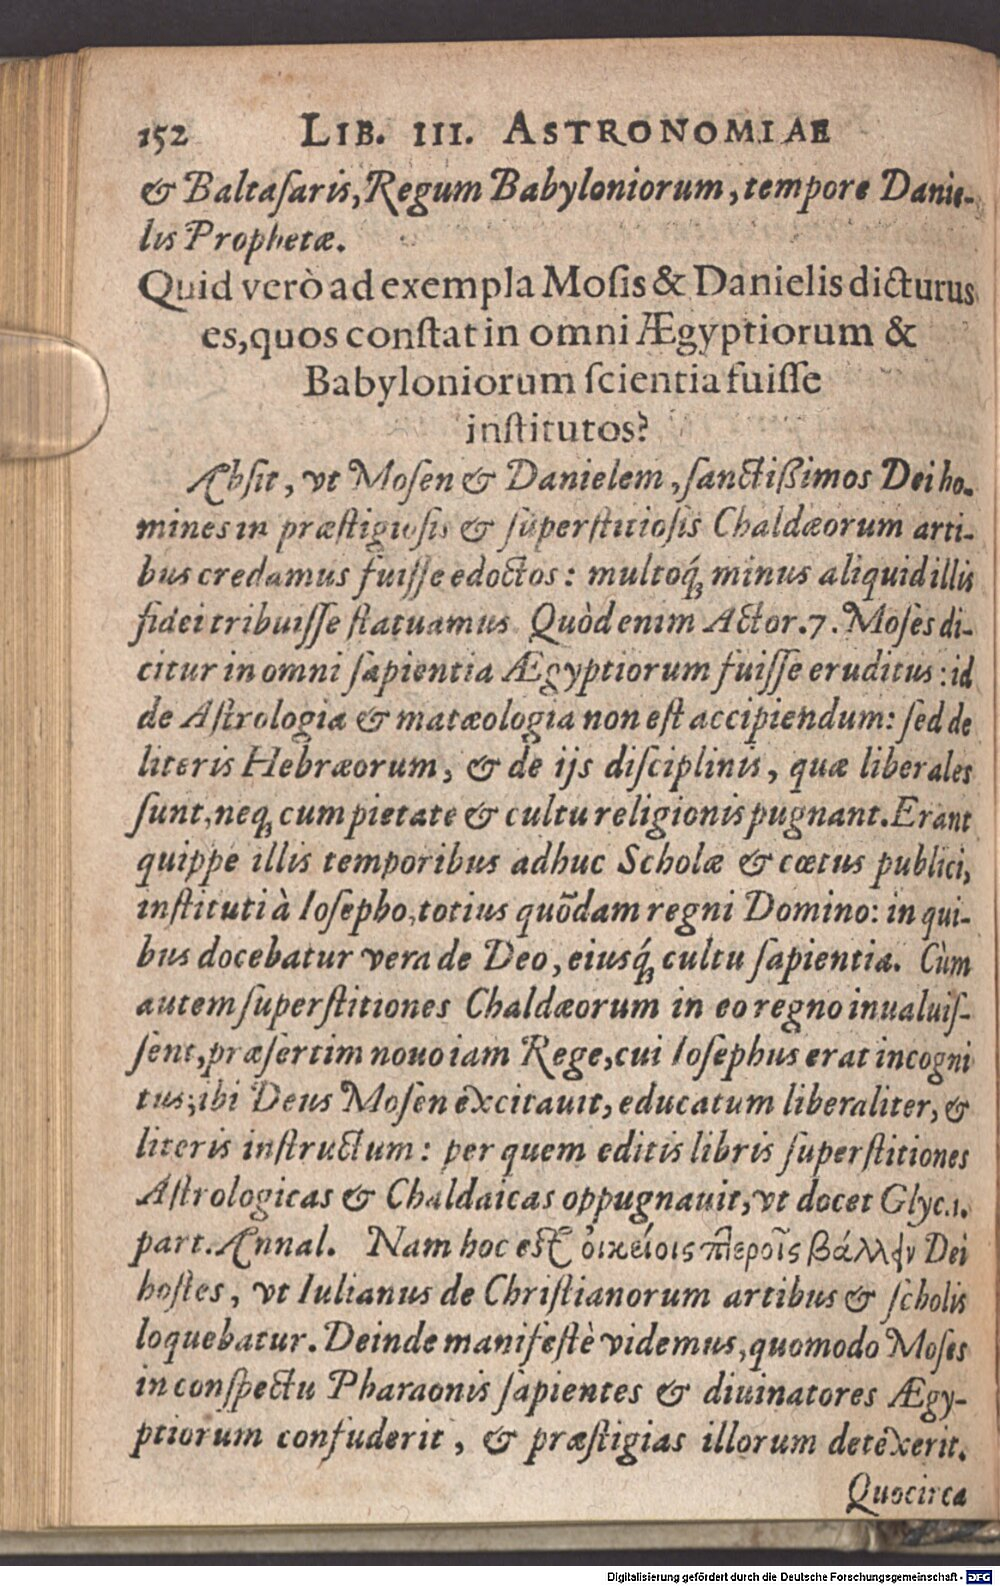 152 LIB. III. ASTRONOMIAE
& Baltaſaris, Regum Babyloniorum, tempore Danie-
lis Prophetæ.
Quid verò ad exempla Moſis & Danielis dicturus
es, quos conſtat in omni Ægyptiorum &
Babyloniorum ſcientia fuiſſe
inſtitutos?
Abſit, vt Moſen & Danielem, ſanctißimos Dei ho-
mines in præſtigioſis & ſuperſtitioſis Chaldæorum arti-
bus credamus fuiſſe edoctos: multoq́ꝫ minus aliquid illis
fidei tribuiſſe ſtatuamus. Quòd enim Actor. 7. Moſes di-
citur in omni ſapientia Ægyptiorum fuiſſe eruditus: id
de Aſtrologia & matæologia non eſt accipiendum: ſed de
literis Hebræorum, & de ijs diſciplinis, quæ liberales
ſunt, neqꝫ cum pietate & cultu religionis pugnant. Erant
quippe illis temporibus adhuc Scholæ & cœtus publici,
inſtituti à Ioſepho, totius quōdam regni Domino: in qui-
bus docebatur vera de Deo, eiusq́ꝫ cultu ſapientia. Cùm
autem ſuperſtitiones Chaldæorum in eo regno inualuiſ-
ſent, præſertim nouo iam Rege, cui Ioſephus erat incogni
tus; ibi Deus Moſen excitauit, educatum liberaliter, &
literis inſtructum: per quem editis libris ſuperſtitiones
Aſtrologicas & Chaldaicas oppugnauit, vt docet Glyc. 1.
part. Annal. Nam hoc est οἰκείοις πτεροῖς βάλλειν Dei
hoſtes, vt Iulianus de Chriſtianorum artibus & ſcholis
loquebatur. Deinde manifeſtè videmus, quomodo Moſes
in conſpectu Pharaonis ſapientes & diuinatores Ægy-
ptiorum confuderit, & præſtigias illorum detexerit.
Quocirca
Digitalisierung gefördert durch die Deutsche Forschungsgemeinschaft - DFG